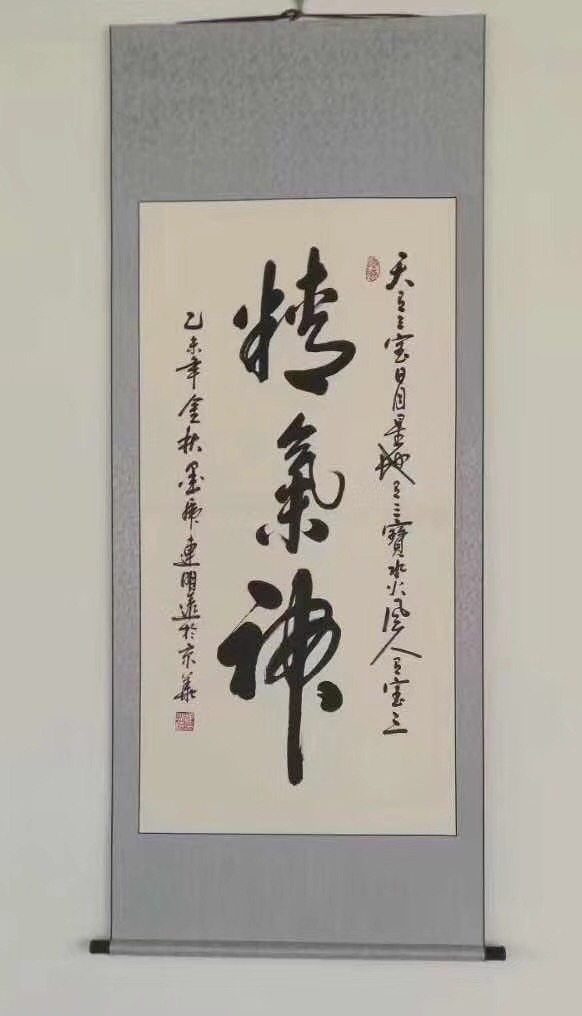 天有三宝日月星地有三寶水火風人有宝三
精氣神
乙未年金秋墨 連明 於京華